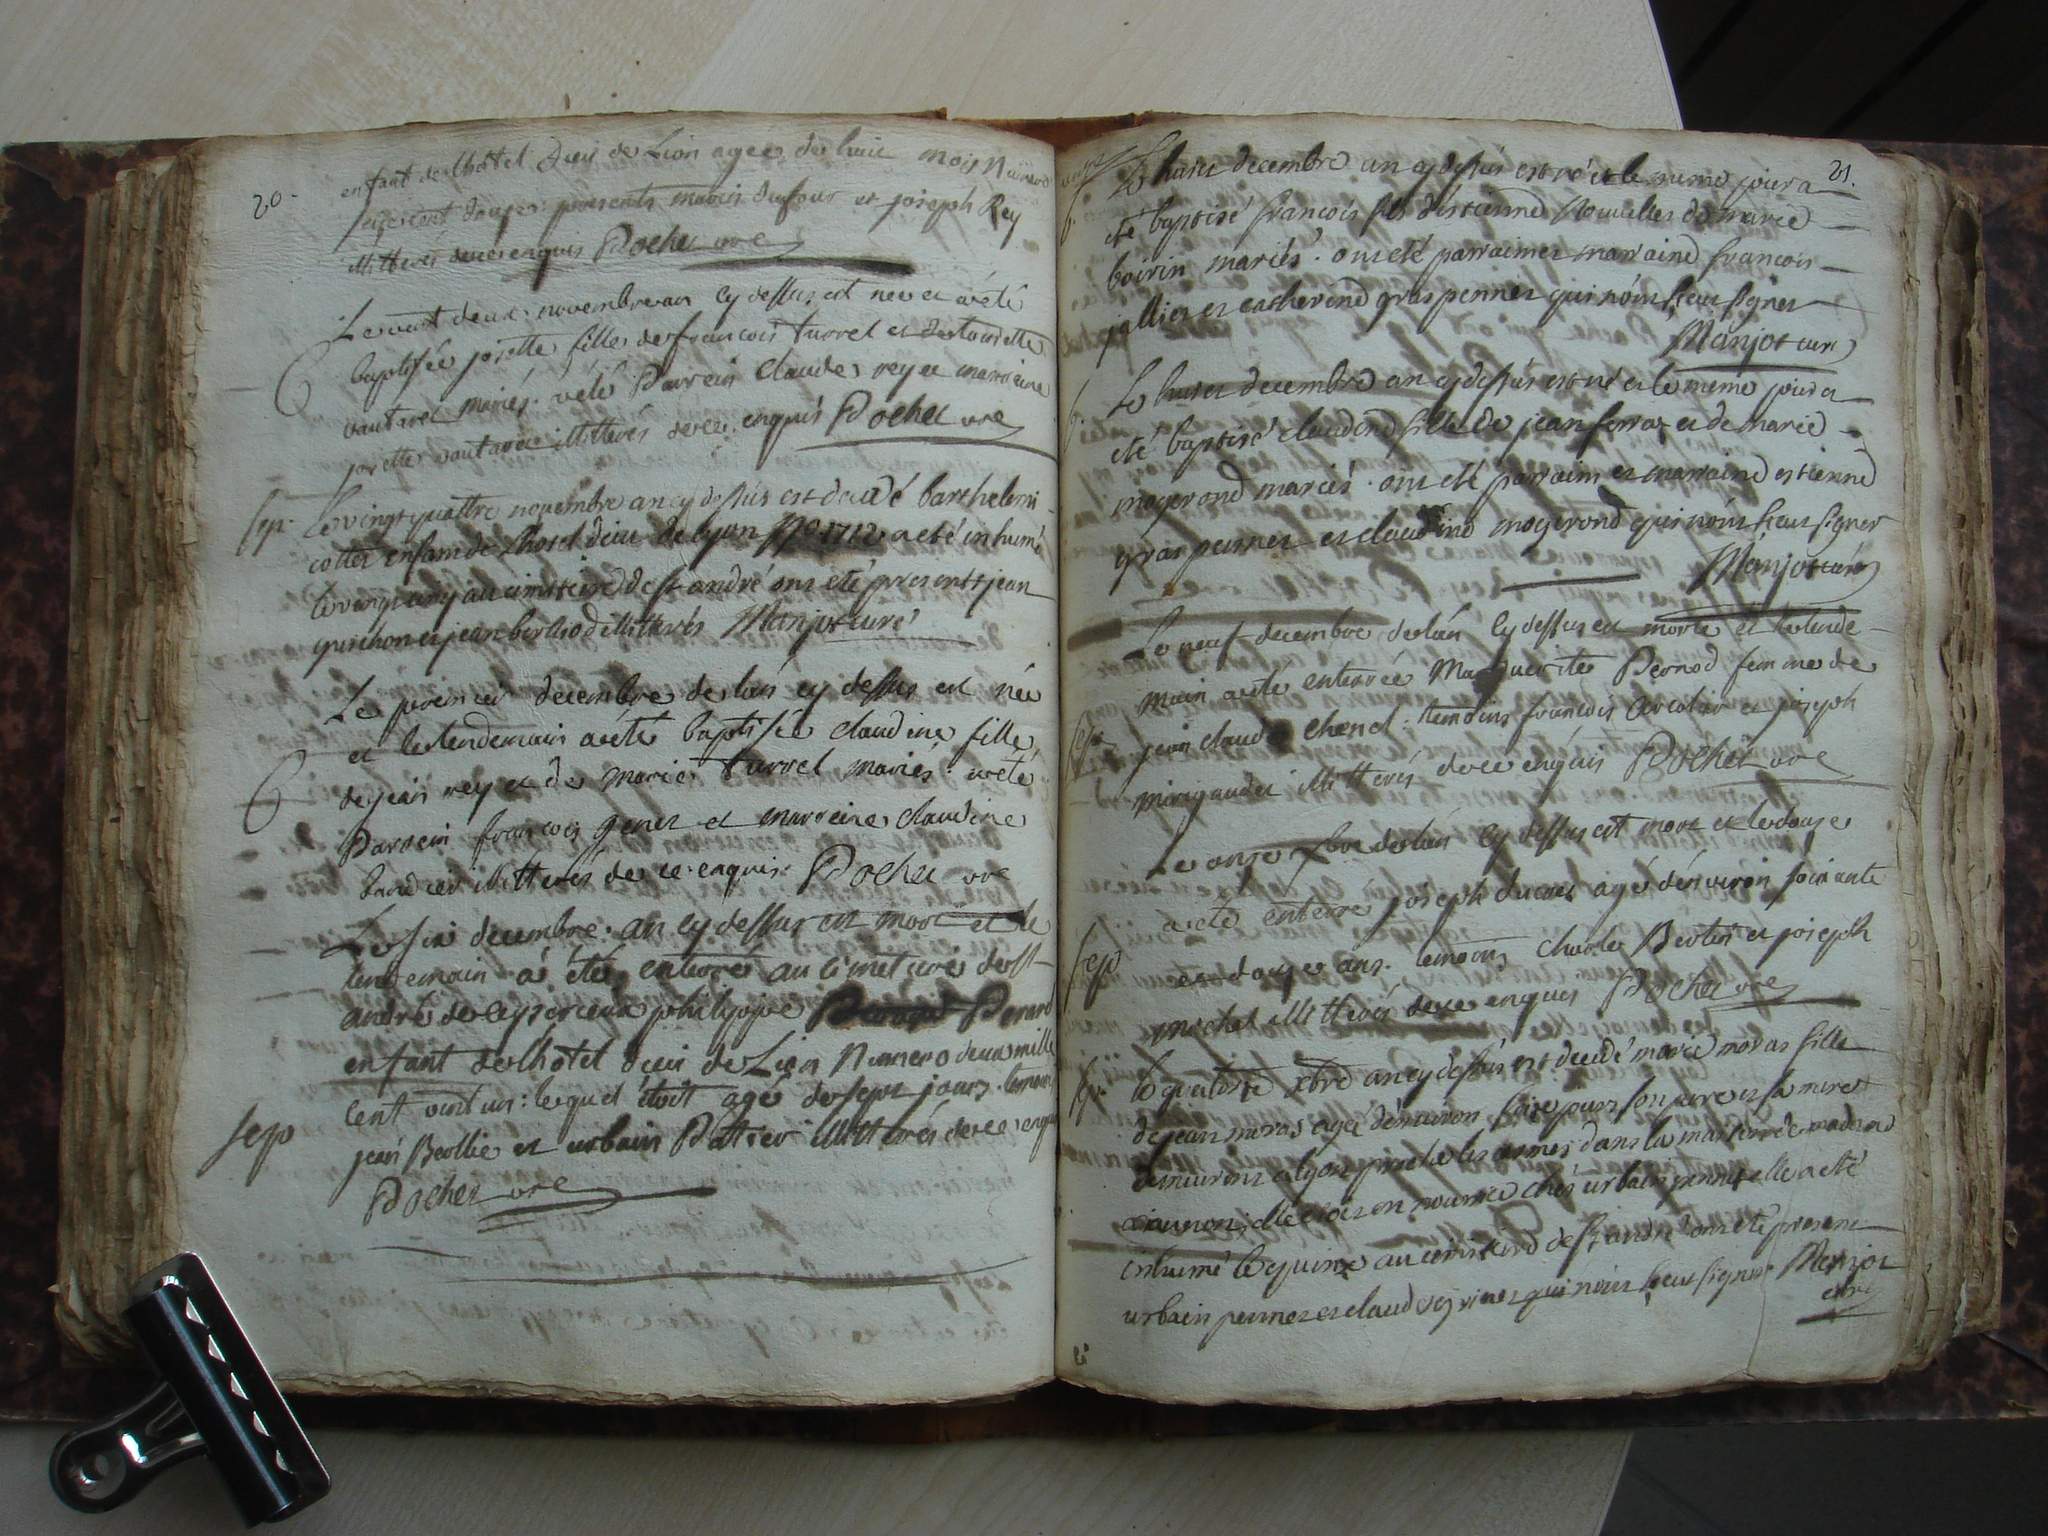 20.
enfant de lhôtel Dieu de Lion agée de huit mois Numero
sept cent douze presents marcis dufour et joseph Rey
illitterés de ce enquis Rochet vre
Le vint deux novembre an cy dessus est née et a eté
baptisée josette fille de francois turrel et de
vautaret mariés. a eté Parrein Claude rey et marreine
josette vautaret illitterés de ce enquis Rochet vre
sep. Le vingt quattre novembre an cy dessus est decedé barthelemi
cottet enfant de l'hotel dieu de lyon No 1712 a eté inhumé
le vingt cinq au cimitiere de st andré ont eté present jean
guichon et jean berliod illitterés Manjot curé
Le premier decembre de lan cy dessus est née
et le lendemain a eté baptisée claudine fille
de jean rey et de marie turrel mariés. a eté
Parrein francois genet et marreine claudine
illitterés de ce enquis. Rochet vre
Le six decembre an cy dessus est mort et le
lendemain a été enterré au cimetiere de st
andré de philippe Perard
enfant de lhôtel dieu de Lion Numero deux mille
cent vint un: lequel étoit agé de sept jours. temoins
sep jean Berlie et urbain Patier illitterés de ce enquis
Rochet vre
21.
Le huict decembre an cy dessus est né et le meme jour a
b. eté baptisé francois fils destienne de marie
boirin mariés. ont eté parrain et marraine francois
jallier et catherine graspennet qui n'ont sceu signer
Manjot curé
b. Le huict decembre an cy dessus est né et le meme jour a
eté baptisé claudine fille de jean ferraz et de marie
mogerond mariés. ont eté parrain et marraine estienne
graspennet et claudine mogerond qui n'ont sceu signer
Manjot curé
Le neuf decembre de lan cy dessus est morte et le lende
main a eté enterrée Marguerite Bernod femme de
sep jean claude Chenel. temoins francois et joseph
mirigaudet illitterés de ce enquis Rochet vre
Le onze xbre de lan cy dessus est mort et le douze
a eté enterré joseph ducret agé d'environ soixante
sep et douze ans. temoins Charle Berlin et joseph
mochet illitterés de ce enquis Rochet vre
sep. Le quatorze xbre an cy dessus est decedé marie moras fille
de jean moras agée d'environ seize jours son pere et sa mere
demeurent a lyon proche les dans la maison de madame
elle etoit en nourrice chés urbain pernet elle a eté
inhumé le quinze au cimitiere de st andré ont eté present
urbain pernet et claude qui n'ont sceu signer Manjot
curé